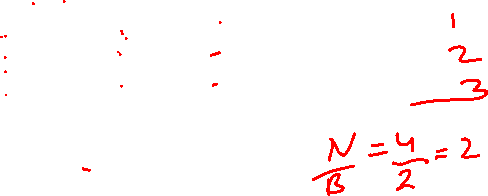 1
2
3
N/B = 4/2 = 2